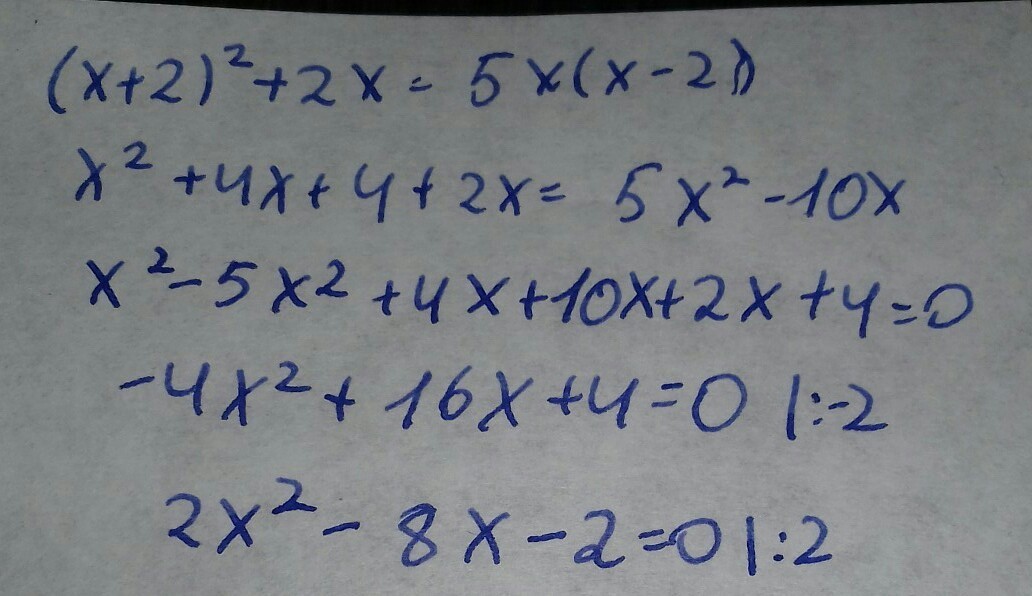 (x+2)²+2x=5x(x-2)
x²+4x+4+2x=5x²-10x
x²-5x²+4x+10x+2x+4=0
-4x²+16x+4=0 |:-2
2x²-8x-2=0 |:2